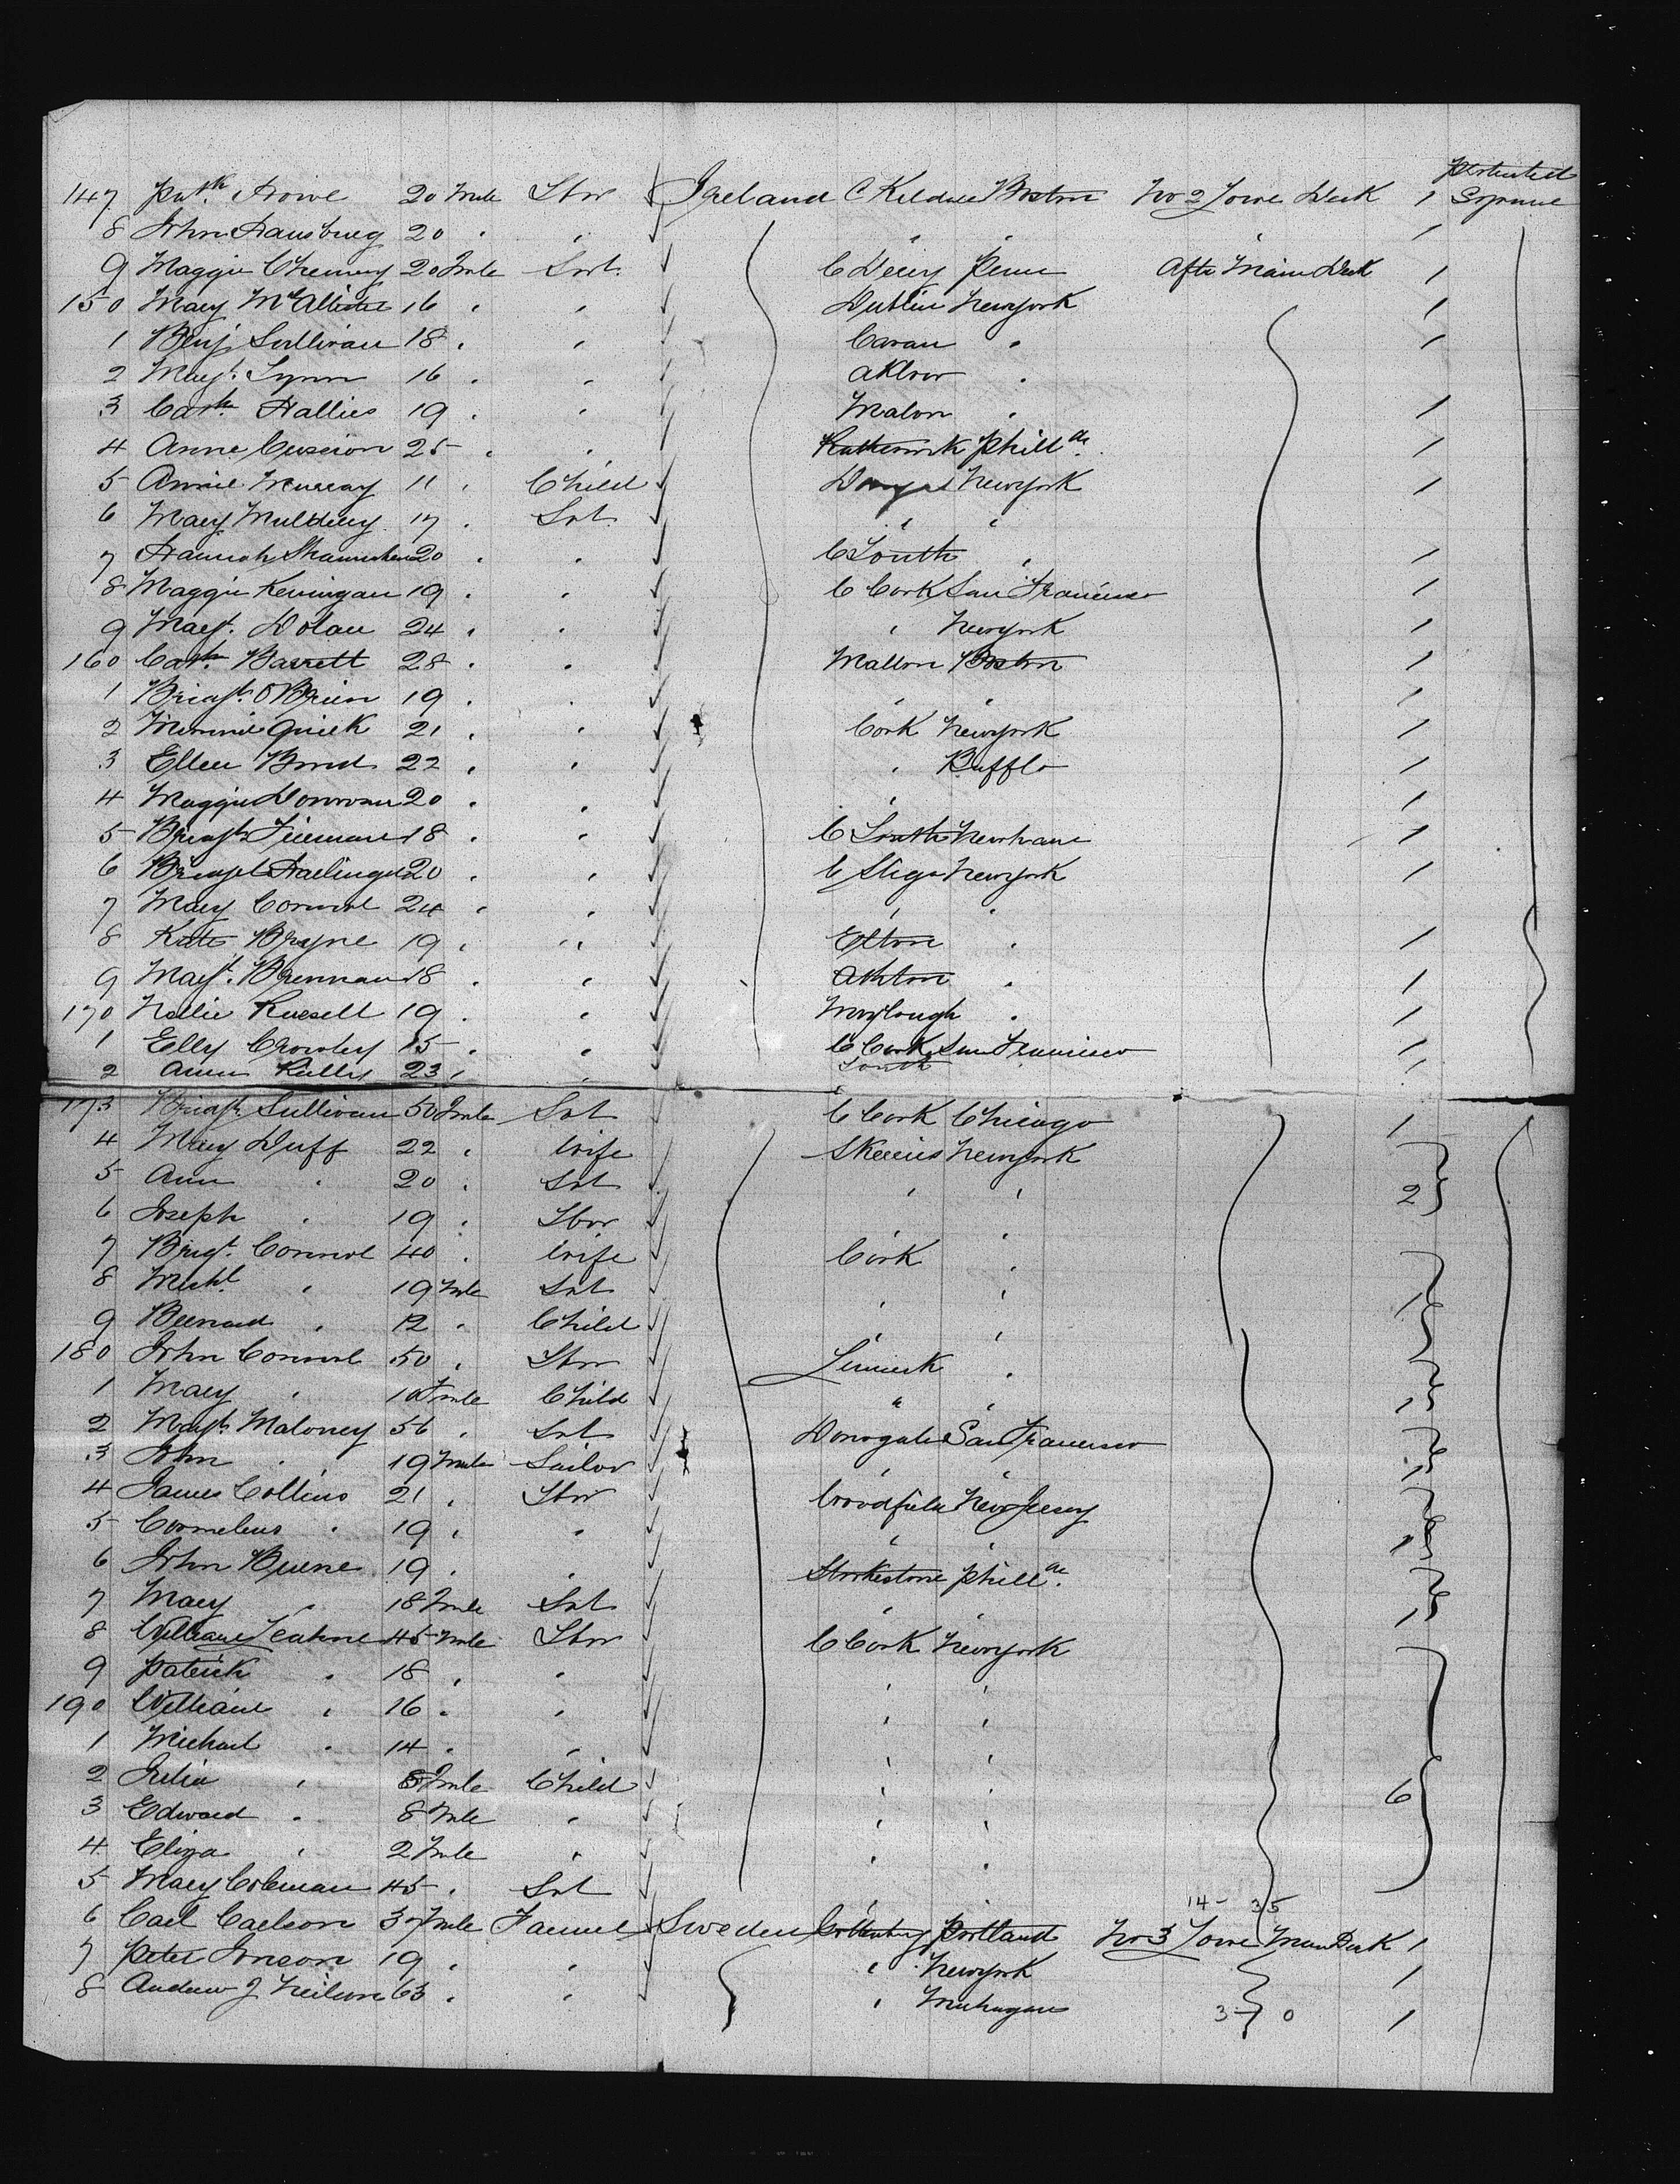 Protracted
147 Patk. Howe 20 Male Lbr Ireland C Kildare Boston No 2 Lower Deck 1 Sojourn
8 John Hansbury 20 " " " " " 1
9 Maggie Chemney 20 Fmle Svt. C Derry Penn Afte Main Deck 1
150 Mary McAllister 16 " " Dublin Newyork 1
1 Benj Sullivan 18 " " Cavan " 1
2 Margt. Lynn 16 " " "
3 Cath Hallies 19 " " Malon " 1
4 Anne 25 " " Phill a. 1
5 Annie Murray 11 " Child Newyork 1
6 Mary Mulderry 17 " Svt " "
7 Hannah 20 " " C Louth " 1
8 Maggie Kerrigan 19 " " C Cork San Francisco 1
9 Margt. Dolan 24 " " " Newyork 1
160 Cath. Barrett 28 " " Mallon Boston 1
1 Bridgt. O Brien 19 " " " " 1
2 Minnie Quick 21 " " Cork Newyork 1
3 Ellen Bond 22 " " " Bufflo 1
4 Maggie Donovan 20 " " " 1
5 Bridgt 18 " " C Louth Newhave 1
6 Bridget 20 " " C Sligo Newyork 1
7 Mary Connol 24 " " " "
8 Kate Bryne 19 " " Elton " 1
9 Margt. Brennan 18 " " " 1
170 Nellie Russell 19 " " Moylough " 1
1 Elly Crowley 15 " " C Cork San Francisco 1
2 Ann 23 " " Louth " 1
173 Bridgt. Sullivan 50 Fmle Svt C Cork Chicago 1
4 Mary Duff 22 " Wife Skerries Newyork
5 Ann " 20 " Svt " " 2
6 Joseph " 19 " Lbor "
7 Brigt. Connol 40 " Wife Cork "
8 Michl. " 19 Mle Svt " "
9 Bernard " 12 " Child " " 1
180 John Connol 50 " Lbr Limerick "
1 Mary " 10 Fmle Child " " 1
2 Margt. Maloney 56 " Svt Donogale San Francisco
3 John " 19 Male Sailor " " 1
4 James Collins 21 " Lbr Woodfield New Jersey
5 Cornelius " 19 " " " " 1
6 John Burne 19 " " Strokestone Phill a.
7 Mary " 18 Fmle Svt " " 1
8 William 45 Mle Lbr C Cork Newyork
9 Patrick " 18 " " " "
190 William " 16 " " " "
1 Michael " 14 " " " "
2 Julia " Fmle Child " "
3 Edward " 8 Mle " " " 6
4 Eliza " 2 Fmle " " "
5 Mary Coleman 45 " Svt "
14- 35
6 Carl Carlson 37 Mle Farmer Sweden Gottenburg Portland No 3 Lower Main Deck 1
7 Peter Jonson 19 " " " Newyork 1
8 Andrew J Neilson 63 " " " Michagan 3- 0 1